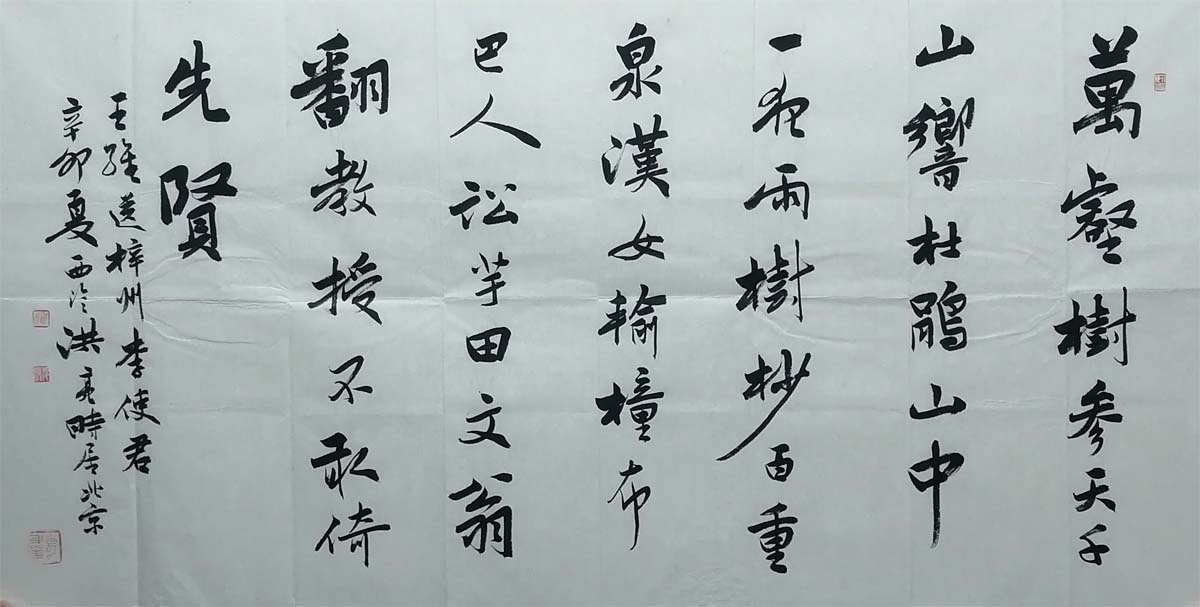 萬壑樹参天千
山響杜鵑山中
一夜雨樹杪百重
泉漢女輸橦布
巴人訟芋田文翁
翻教授不敢倚
先賢
王維送梓州李使君
辛卯夏西泠洪亮時居北京